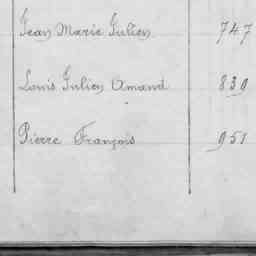 Jean Marie Julien 747
Louis Julien Amand 839
Pierre François 951